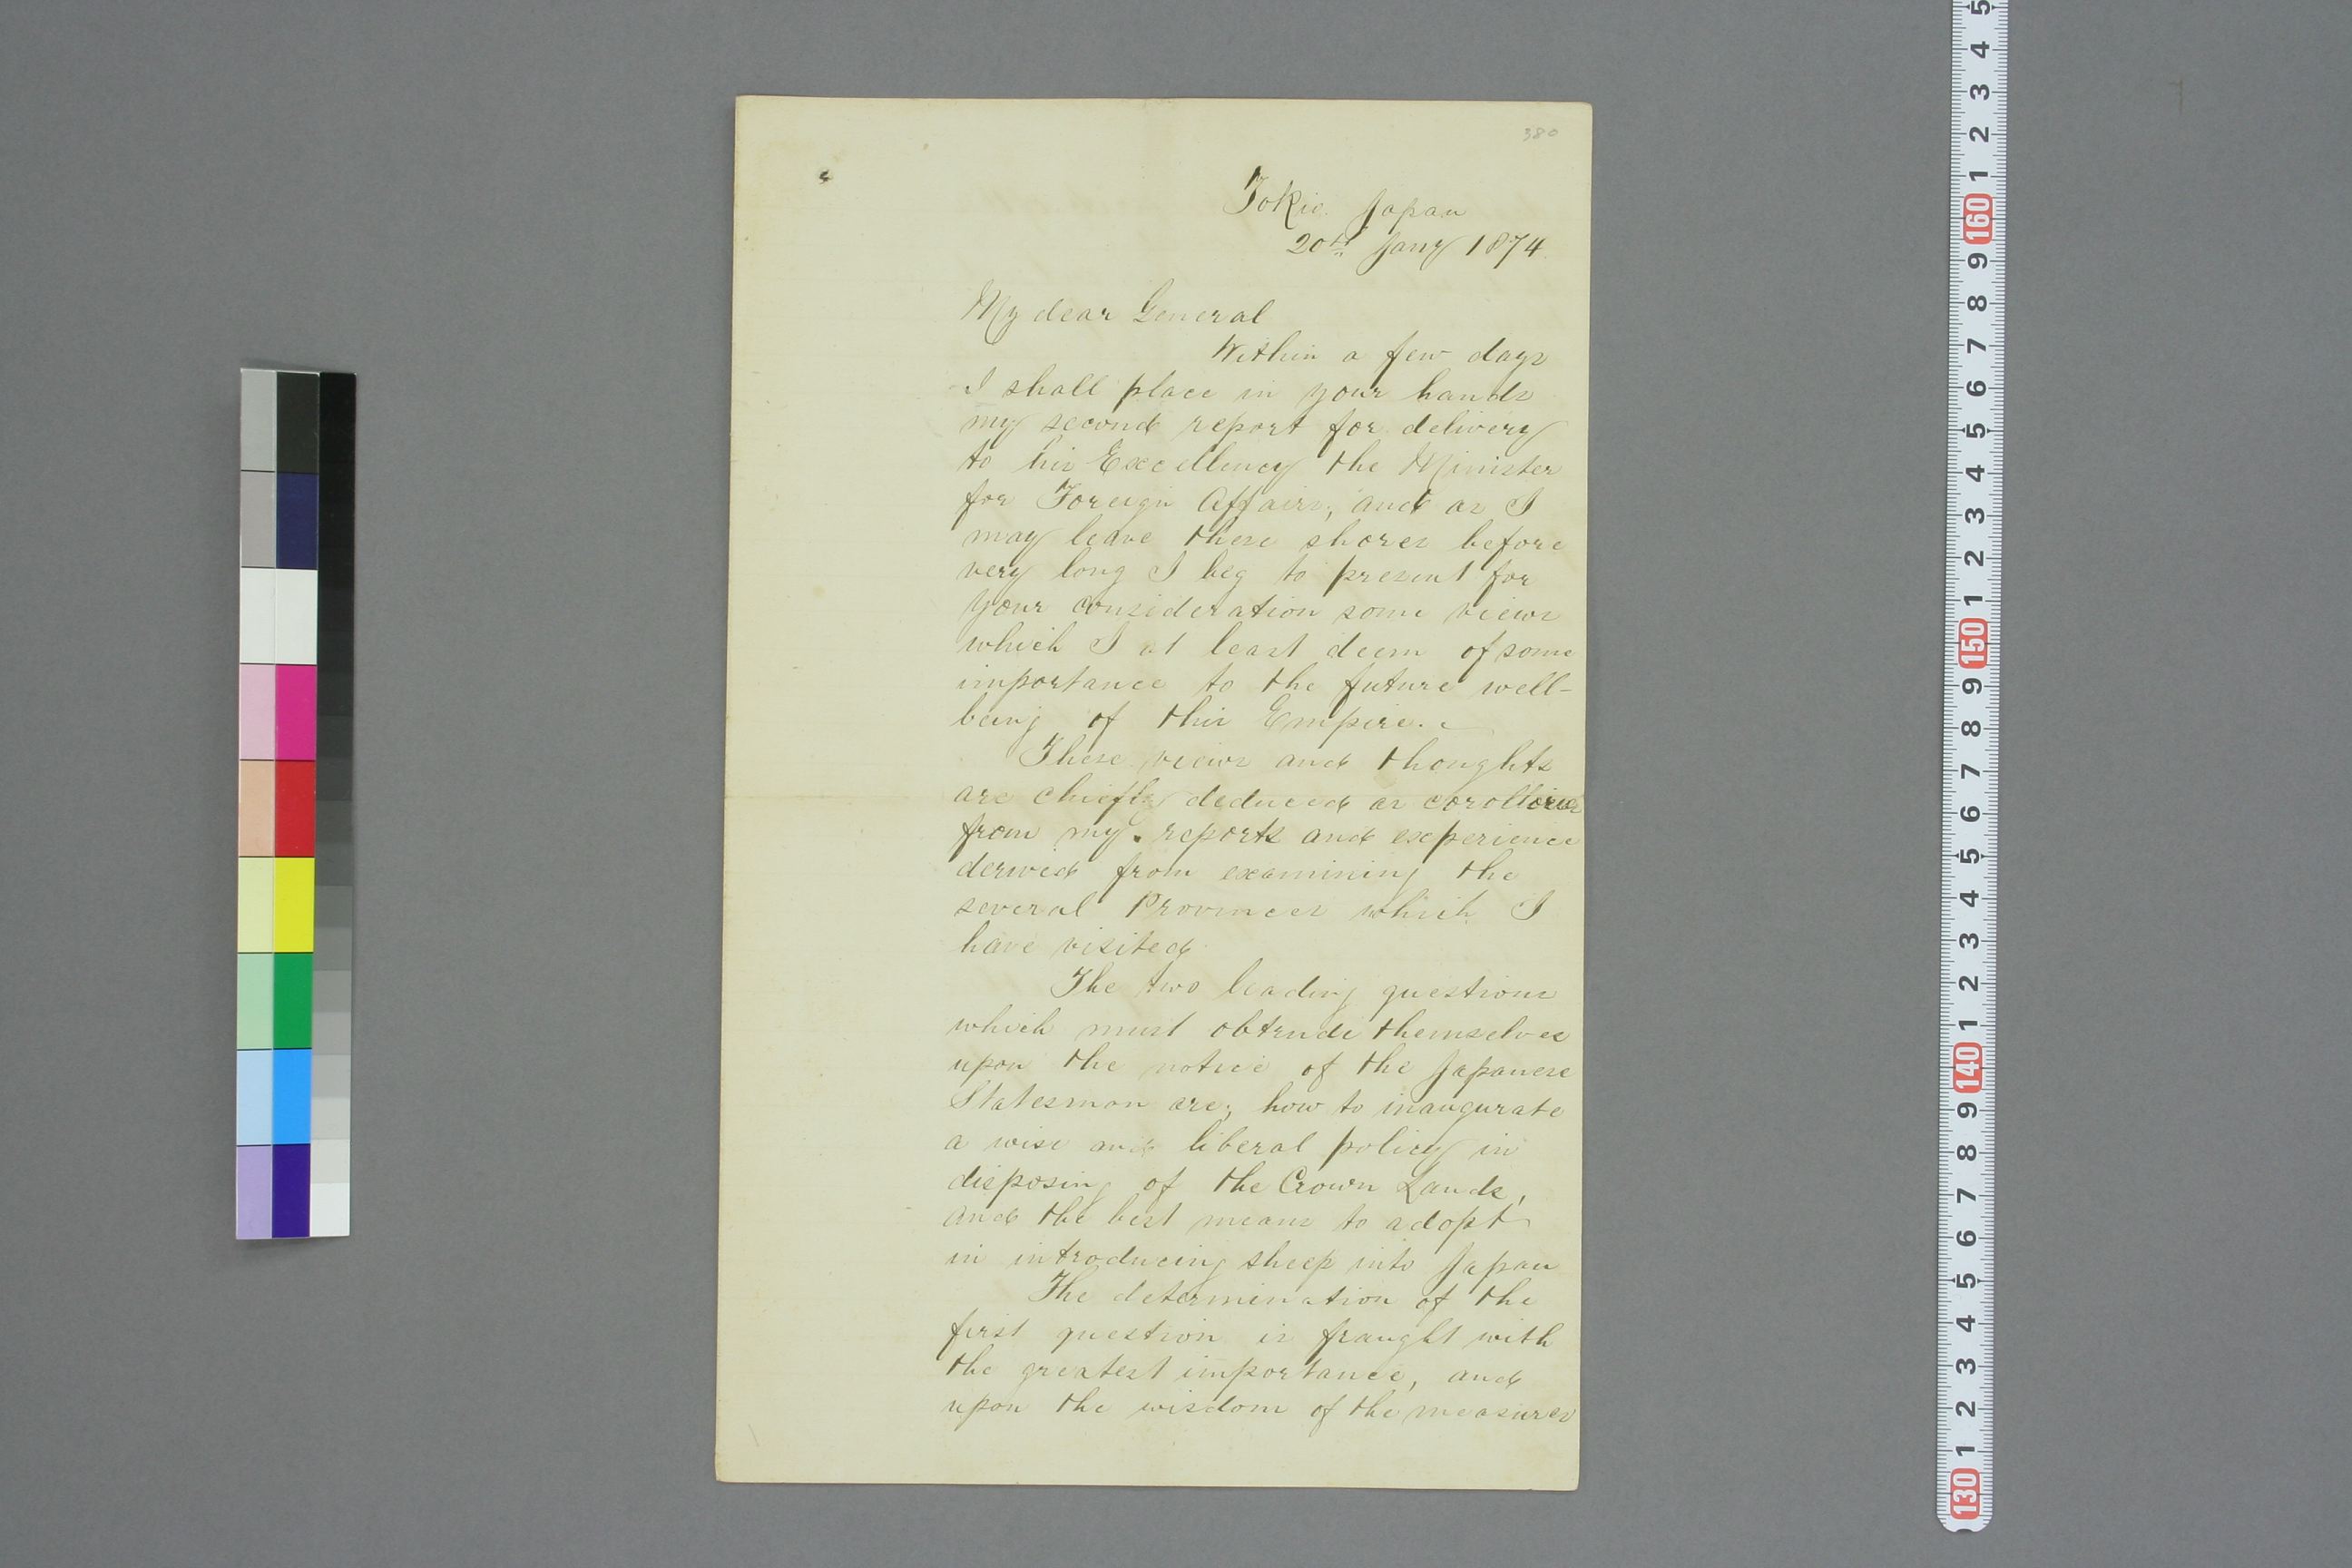 380
Tokio. Japan
20th Jany 1874.
My dear General
Within a few days
I shall place in your hands
my second report for delivery
to his Excellency the Minister
for Foreign Affairs; and as I
may leave these shores before
very long I beg to present for
your consideration some views
which I at least deem of some
importance to the future well-
being of this Empire.
These views and thoughts
are chiefly deduced as corollaries
from my reports and experience
derived from examining the
several Provinces which I
have visited
The two leading questions
which must obtrude themselves
upon the notice of the Japanese
Statesman are; how to inaugurate
a wise and liberal policy in
disposing of the Crown Lands,
and the best means to adopt
in introducing sheep into Japan
The determination of the
first question is fraught with
the greatest importance, and
upon the wisdom of the measures
5
4
3
2
1
160
9
8
7
6
5
4
3
2
1
150
9
8
7
6
5
4
3
2
1
140
9
8
7
6
5
4
3
2
1
130